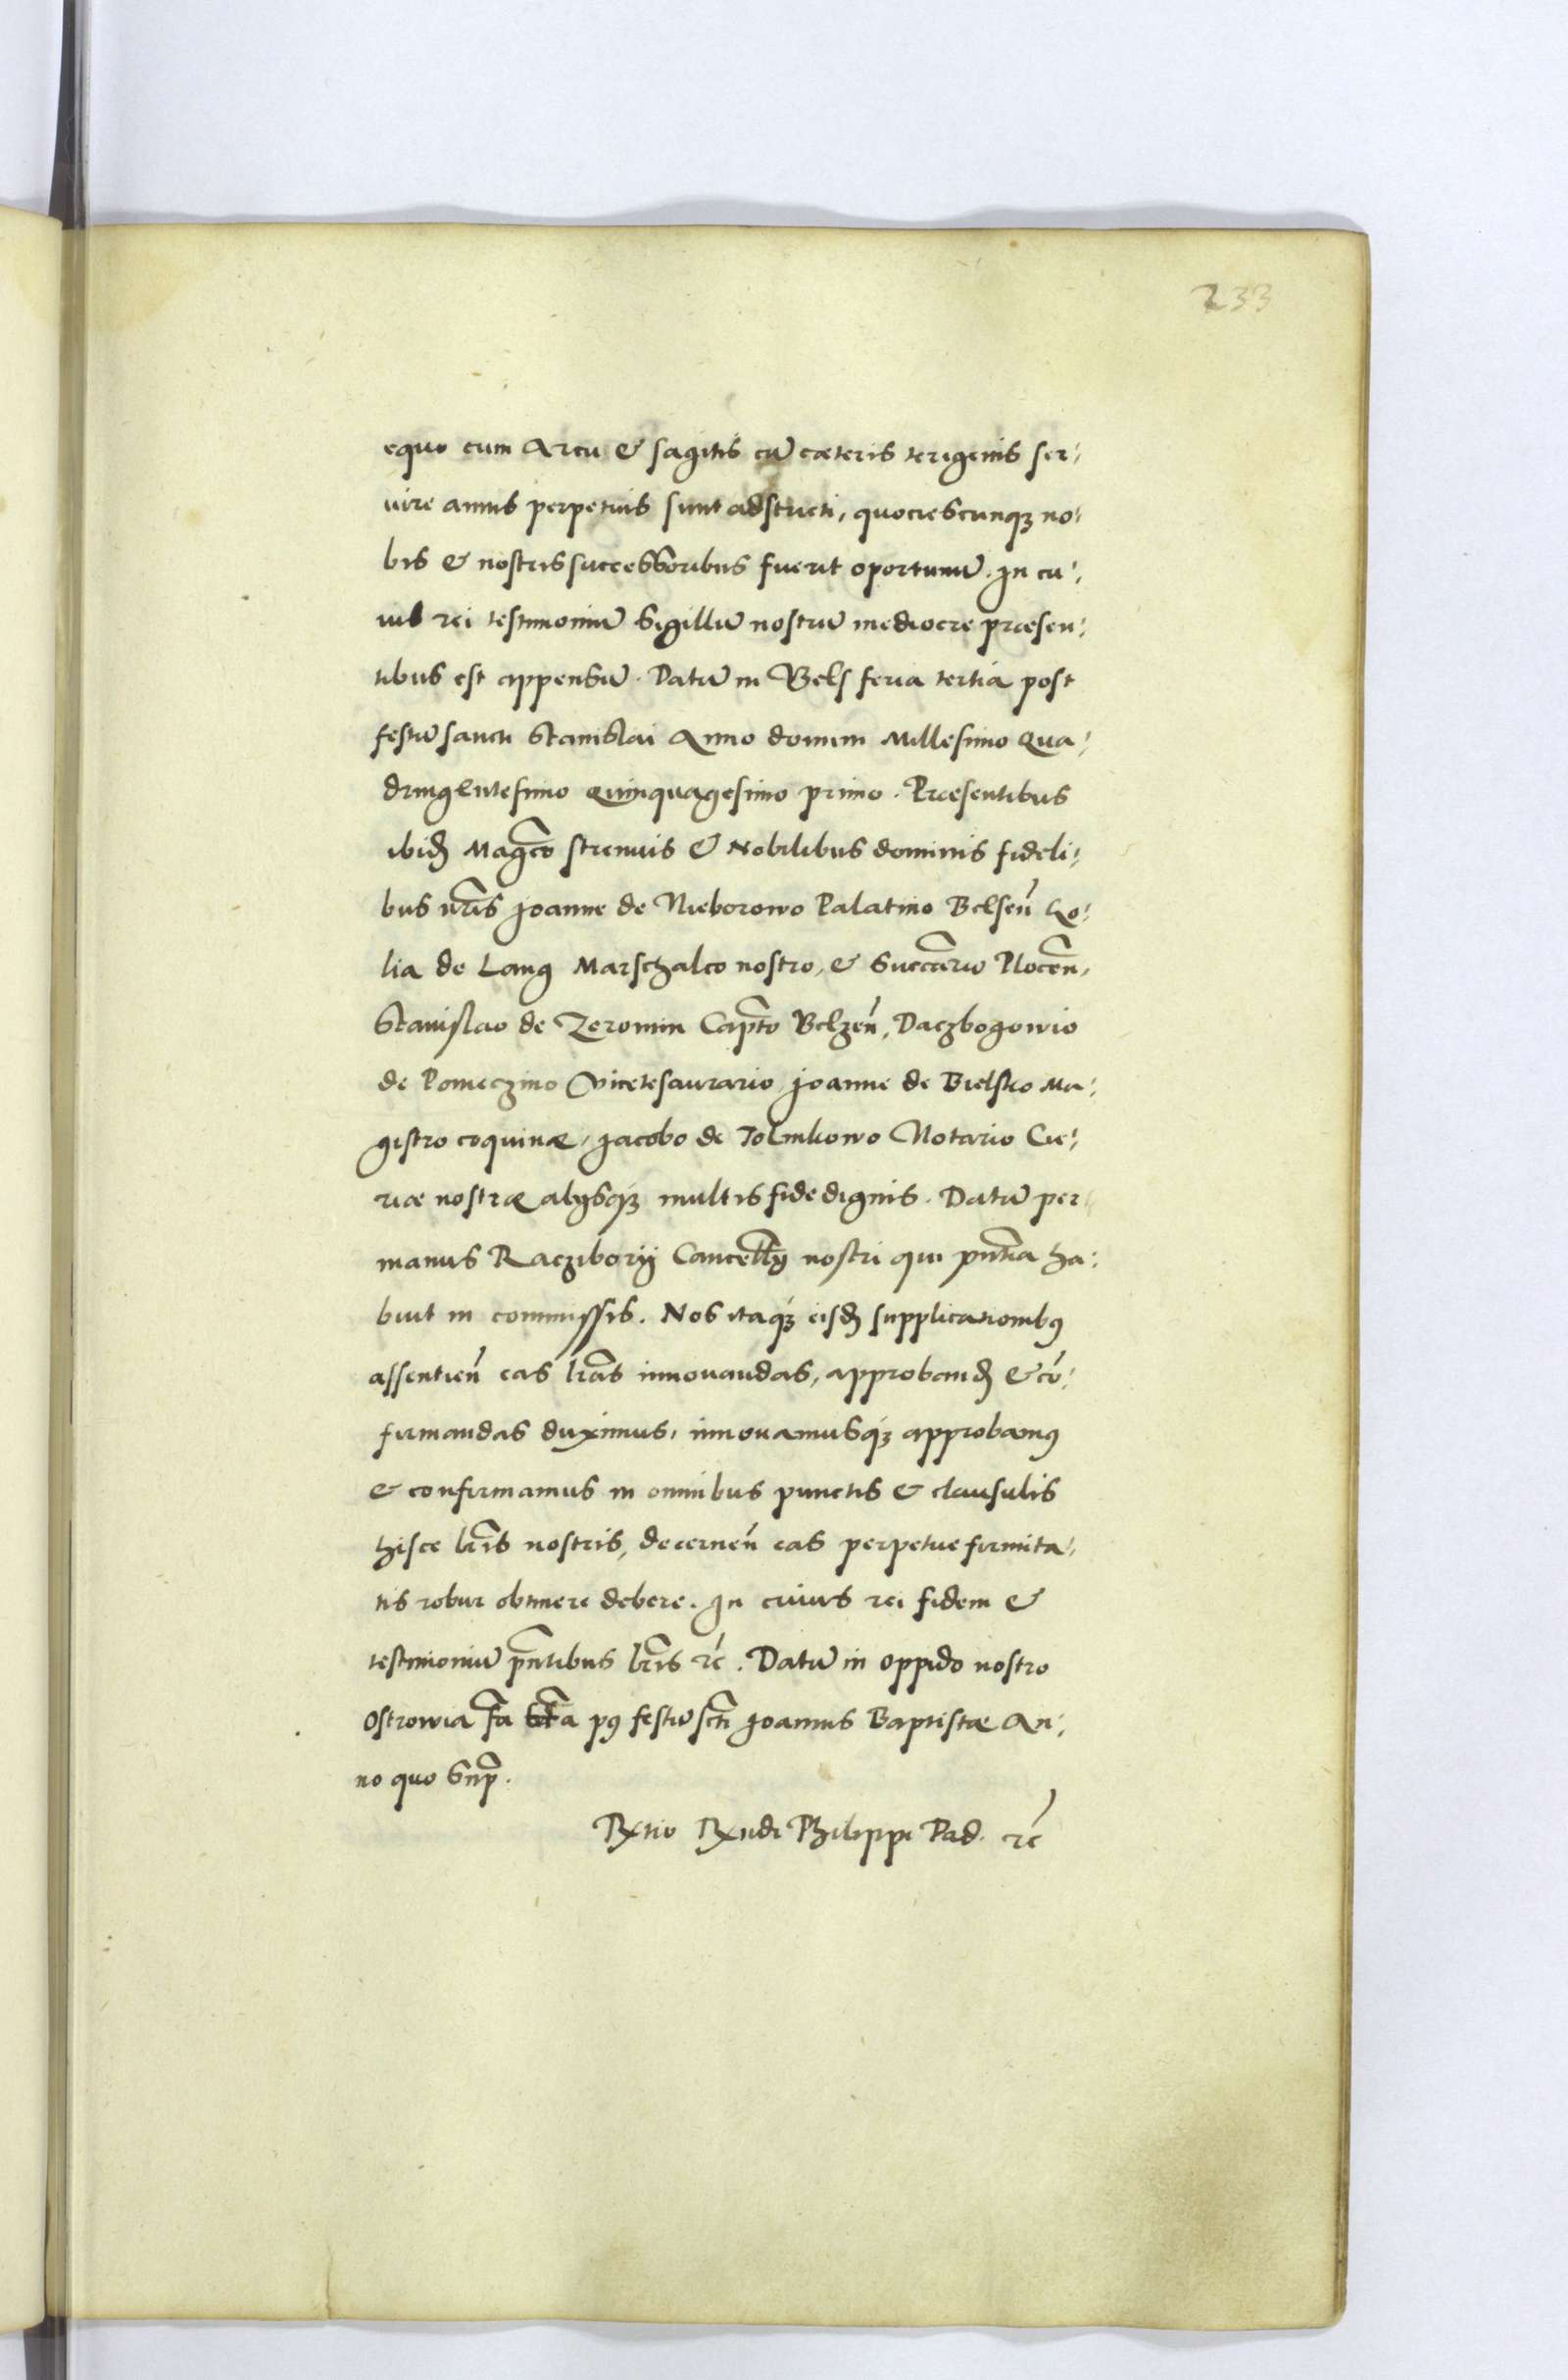 233
equo cum Arcu & sagitis cū cæteris terigenis ser⸗
uire annis perpetuis sunt adstricti, quociescunq₃ no⸗
bis & nostris successoribus fuerit oportunū. In cu⸗
ius rei testimoniū Sigillū nostrū mediocre præsen⸗
tibus est appensū. Datū in Bels feria tertia post
festū sancti Stanislai Anno domini Millesimo Qua⸗
dringentesimo Quinquagesimo primo. Præsentibus
ibid Mag̃co strenuis & Nobilibus dominis fideli⸗
bus nr̃is Joanne de Nieborowo Palatino Belsen̄ Go⸗
lia de Lang Marschalco nostro, & Succãrio Plocen̄,
Stanislao de Zeromin Capt̃o Belzen̄, Daczbogowio
de Pomeczino Vicetesaurario, Joanne de Bielsko Ma⸗
gistro coquinæ, Jacobo de Tolmkowo Notario Cu⸗
riæ nostræ alÿsq₃ multis fide dignis. Datū per
manus Racziborij Cancellr̃ÿ nostri qui pñtia ha⸗
buit in commissis. Nos itaq₃ eisd supplicationib9
assentien̄ eas lr̃as innouandas, approband & cō⸗
firmandas duximus, innouamusq₃ approbam9
& confirmamus in omnibus punctis & clausulis
hisce lr̃is nostris, decernen̄ eas perpetue firmita⸗
tis robur obtinere debere. In cuius rei fidem &
testimoniū pñtibus lr̃is rc̄. Datū in oppido nostro
Ostrowia fã p9 festū sct̃i Joannis Baptistæ An⸗
no quo Sup̃.
Rx̃tio Rx̃ndi Philippi Pad. rc̄